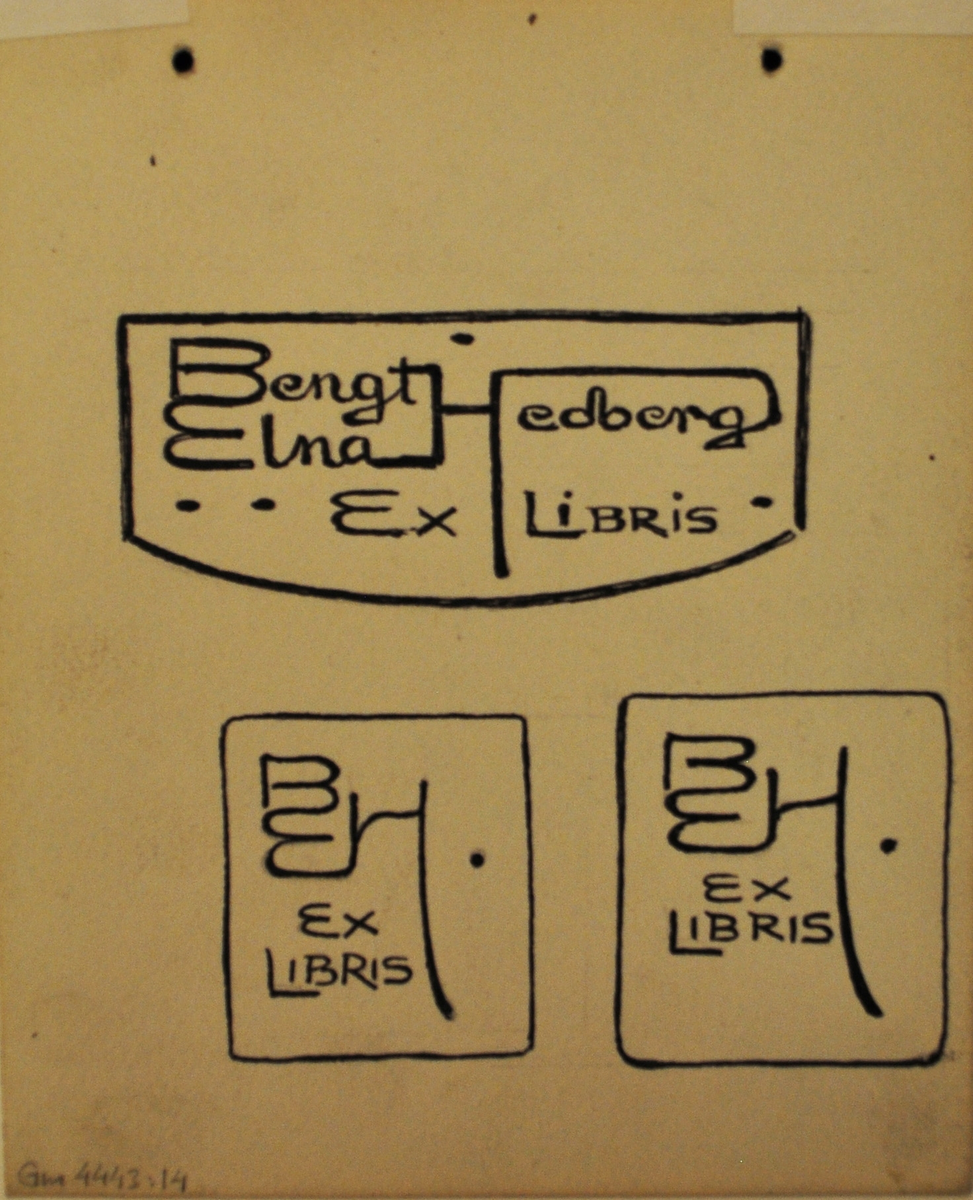 Bengt
Elna Hedberg
Ex LiBRiS
B
EH
Ex
LIBRIS
B
EH
Ex
LIBRIS
Gm 4443:14